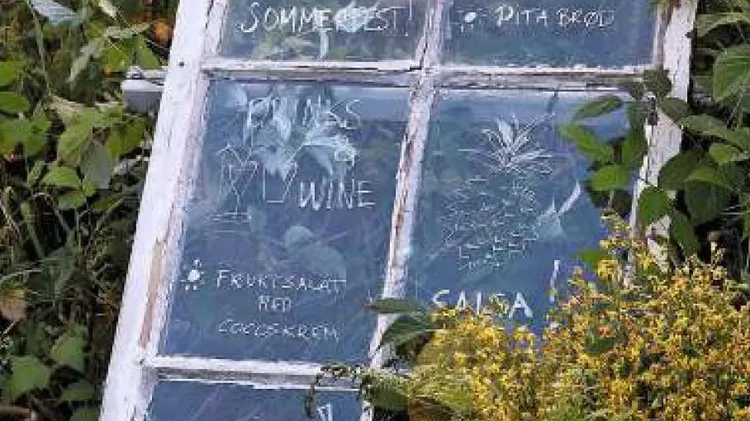 SOMMERFEST!
PITA BRØD
DRINKS
&
WINE
FRUKTSALAT
MED
COCOSKREM
SALSA!